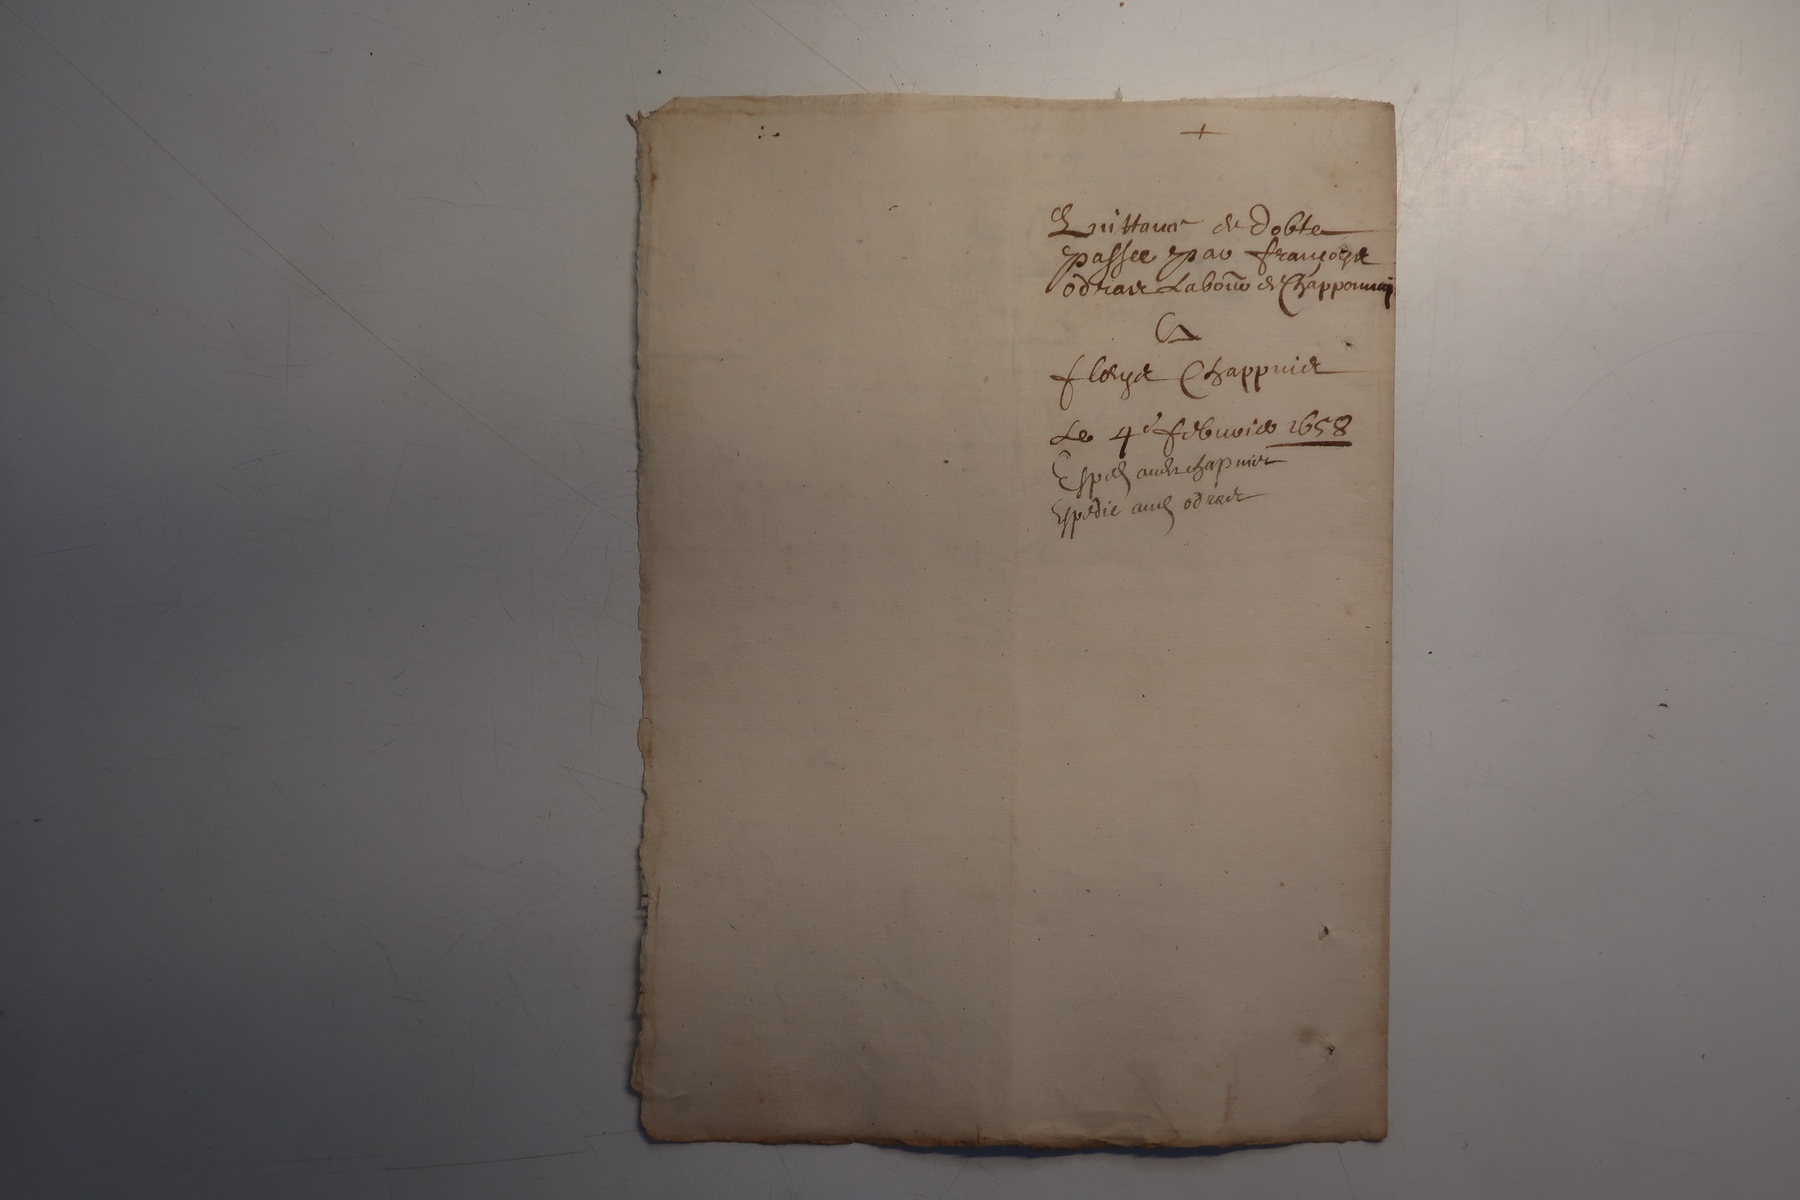 +
Quittance de Debte
passee par françoyse
odrade Labour de Chapponnay
A
fleurye Chappuise
Le 4e febvrier 1658
Expedié aud chapuise
Expedie aud odrade